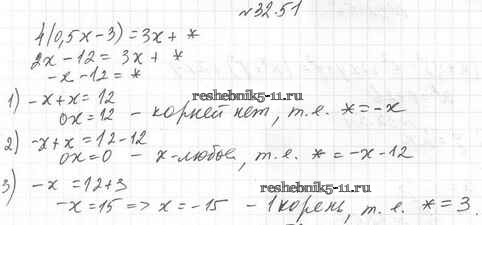 №32.51
4(0,5x-3)=3x+*
2x-12=3x+*
-x-12=*
reshebnik5-11.ru
1) -x+x=12
0x=12 - корней нет, т.е. *=-x
2) -x+x=12-12
0x=0 - x-любое, т.е. *=-x-12
reshebnik5-11.ru
3) -x=12+3
-x=15=>x=-15 - 1 корень, т.е. *=3.